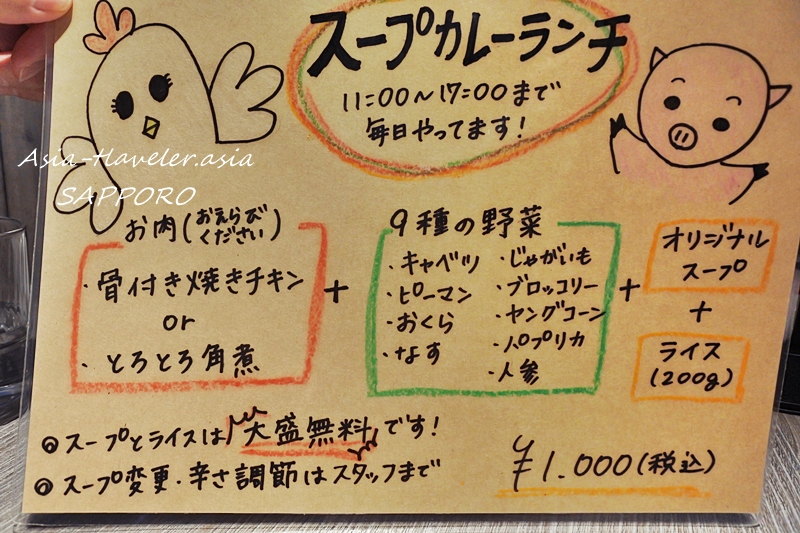 スープカレーランチ
11:00～17:00まで
毎日やってます!
Asia-Traveler.asia
SAPPORO
お肉(おえらびください)
・骨付き焼きチキン
or
・とろとろ角煮
+
9種の野菜
・キャベツ
・ピーマン
・おくら
・なす
・じゃがいも
・ブロッコリー
・ヤングコーン
・パプリカ
・人参
+
オリジナル
スープ
+
ライス
(200g)
◎スープとライスは大盛無料です!
◎スープ変更・辛さ調節はスタッフまで
¥1.000(税込)